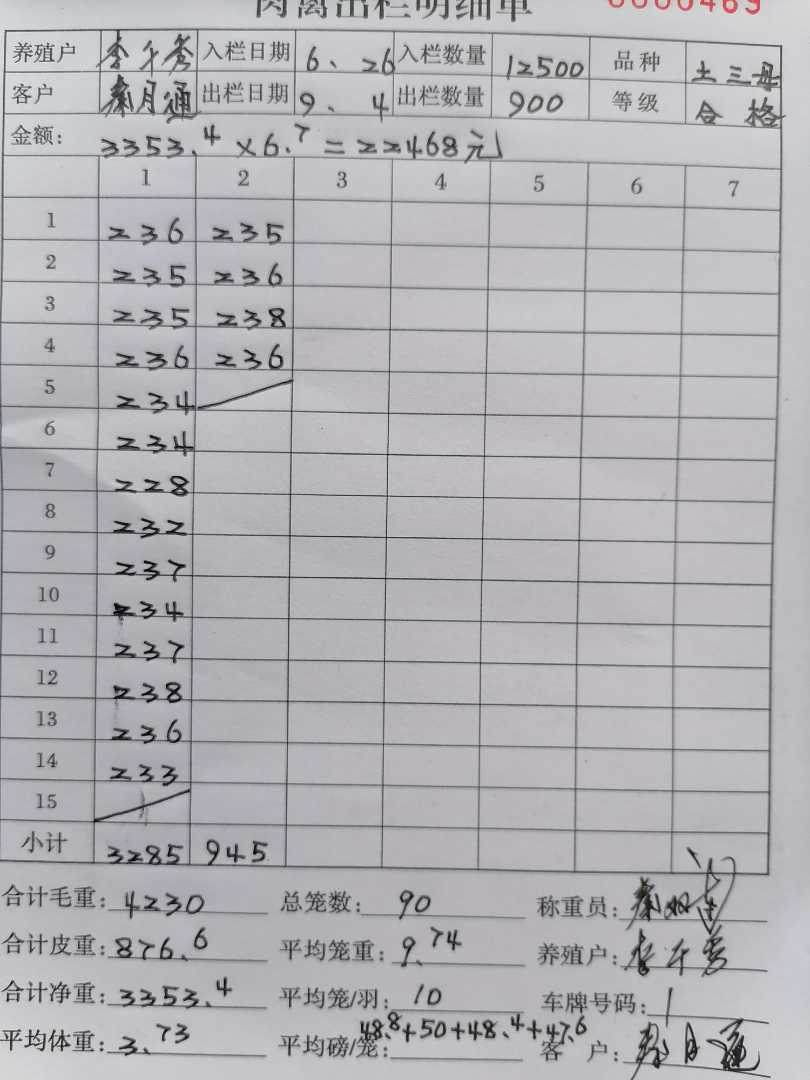 肉禽出栏明细单 0000469
养殖户 李千秀 入栏日期 6、26 入栏数量 12500 品种 土三母
客户 秦月通 出栏日期 9、4 出栏数量 900 等级 合格
金额: 3353.4×6.7=22468元
1 2 3 4 5 6 7
1 236 235
2 235 236
3 235 238
4 236 236
5 234
6 234
7 228
8 232
9 237
10 234
11 237
12 238
13 236
14 233
15
小计 3285 945
合计毛重: 4230 总笼数: 90 称重员:
合计皮重: 876.6 平均笼重: 9.74 养殖户: 李千秀
合计净重: 3353.4 平均笼/羽: 10 车牌号码:
平均体重: 3.73 平均磅/笼: 48.8+50+48.4+47.6 客户: 秦月通